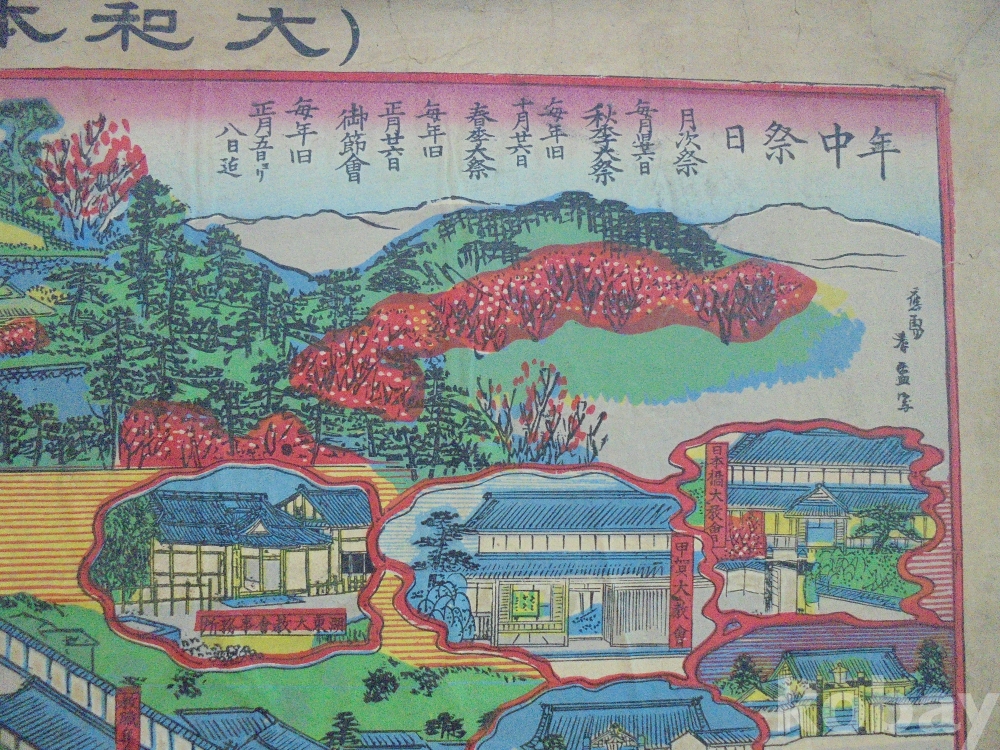 大和本
年中祭日
月次祭
毎月廿六日
秋季大祭
毎年旧
十月廿六日
春季大祭
毎年旧
正月廿六日
御節會
毎年旧
正月五日ヨリ
八日迠
日本橋大教會
甲賀大教會
湖東大教會事務所